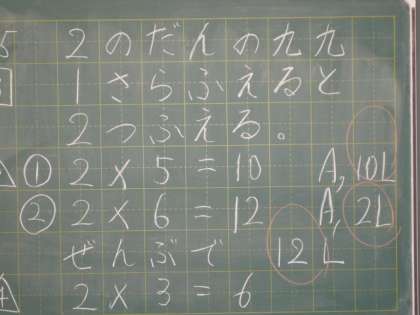 2のだんの九九
1さらふえると
2つふえる。
① 2×5=10 A, 10L
② 2×6=12 A, 2L
ぜんぶで 12L
2×3=6